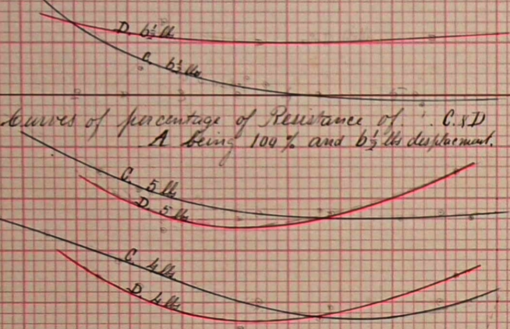 D. 6½ lbs
C. 6½ lbs
Curves of percentage of Resistance of C. & D
A being 100 % and 6½ lbs displacement.
C. 5 lbs
D. 5 lbs
C. 4 lbs
D. 4 lbs